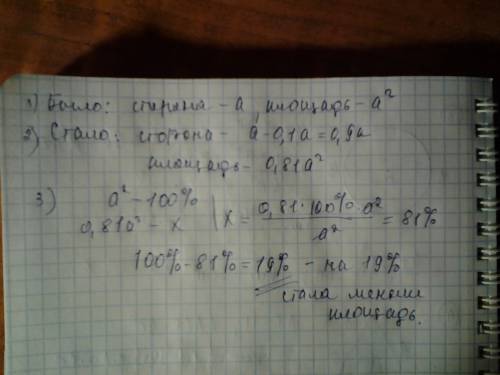 1) Было: сторона - a, площадь - a²
2) Стало: сторона - a - 0,1a = 0,9a
площадь - 0,81a²
3) a² - 100%
0,81a² - x | x = 0,81·100%·a² / a² = 81%
100% - 81% = 19% - на 19%
стала меньше
площадь.